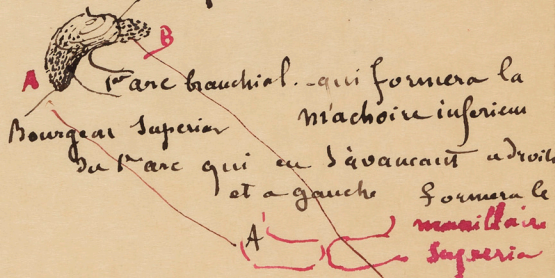 B
A
1er arc branchial. qui formera la
machoire inferieur
Bourgeon Superior
du 1er arc qui en s'avancant a droite
et a gauche formera le
A' maxillaire
Superia